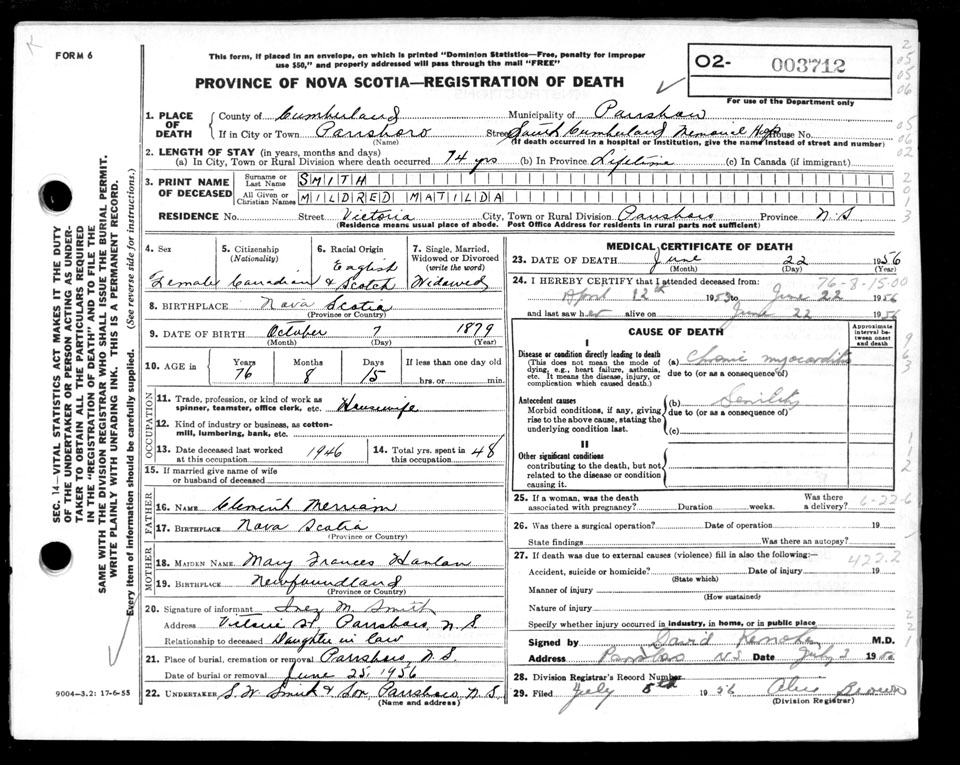 FORM 6
This form, if placed in an envelope, on which is printed "Dominion Statistics—Free, penalty for improper
use $50," and properly addressed will pass through the mail "FREE"
PROVINCE OF NOVA SCOTIA—REGISTRATION OF DEATH
O2- 003712
For use of the Department only
1. PLACE OF DEATH
County of Cumberland Municipality of Parrsboro
If in City or Town Parrsboro Street South Cumberland Memorial Hosp House No.
(Name) (If death occurred in a hospital or institution, give the name instead of street and number)
2. LENGTH OF STAY (in years, months and days)
(a) In City, Town or Rural Division where death occurred 74 yrs (b) In Province Lifetime (c) In Canada (if immigrant)
3. PRINT NAME OF DECEASED
Surname or Last Name SMITH
All Given or Christian Names MILDRED MATILDA
RESIDENCE No. Street Victoria City, Town or Rural Division Parrsboro Province N.S.
(Residence means usual place of abode. Post Office Address for residents in rural parts not sufficient)
4. Sex Female
5. Citizenship (Nationality) Canadian
6. Racial Origin English & Scotch
7. Single, Married, Widowed or Divorced (write the word) Widowed
8. BIRTHPLACE Nova Scotia
(Province or Country)
9. DATE OF BIRTH October 7 1879
(Month) (Day) (Year)
10. AGE in Years 76 Months 8 Days 15 If less than one day old
hrs. or min.
OCCUPATION
11. Trade, profession, or kind of work as
spinner, teamster, office clerk, etc. Housewife
12. Kind of industry or business, as cotton-
mill, lumbering, bank, etc.
13. Date deceased last worked at this occupation 1946
14. Total yrs. spent in this occupation 48
15. If married give name of wife
or husband of deceased
FATHER
16. NAME Clement Merriam
17. BIRTHPLACE Nova Scotia
(Province or Country)
MOTHER
18. MAIDEN NAME Mary Frances Hanlan
19. BIRTHPLACE Newfoundland
(Province or Country)
20. Signature of informant Inez M. Smith
Address Victoria St Parrsboro, N.S.
Relationship to deceased Daughter in law
21. Place of burial, cremation or removal Parrsboro, N.S.
Date of burial or removal June 25, 1956
22. UNDERTAKER S. W. Smith & Son, Parrsboro, N.S.
(Name and address)
MEDICAL CERTIFICATE OF DEATH
23. DATE OF DEATH June 22 1956
(Month) (Day) (Year)
24. I HEREBY CERTIFY that I attended deceased from: 76-8-15.00
April 12th 1953 to June 22 1956
and last saw her alive on June 22 1956
CAUSE OF DEATH
Approximate interval between onset and death
I
Disease or condition directly leading to death
(This does not mean the mode of
dying, e.g., heart failure, asthenia,
etc. It means the disease, injury, or
complication which caused death.)
(a) Chronic myocarditis
due to (or as a consequence of)
Antecedent causes
Morbid conditions, if any, giving
rise to the above cause, stating the
underlying condition last.
(b) Senility
due to (or as a consequence of)
(c)
II
Other significant conditions
contributing to the death, but not
related to the disease or condition
causing it.
25. If a woman, was the death
associated with pregnancy? Duration weeks. Was there a delivery? 6-22-6
26. Was there a surgical operation? Date of operation 19
State findings Was there an autopsy?
27. If death was due to external causes (violence) fill in also the following:— 422.2
Accident, suicide or homicide? Date of injury 19
(State which)
Manner of injury
(How sustained)
Nature of injury
Specify whether injury occurred in industry, in home, or in public place
Signed by David M.D.
Address Parrsboro N.S. Date July 3 1956
28. Division Registrar's Record Number
29. Filed July 5th 1956 Brown
(Division Registrar)
SEC. 14—VITAL STATISTICS ACT MAKES IT THE DUTY
OF THE UNDERTAKER OR PERSON ACTING AS UNDER-
TAKER TO OBTAIN ALL THE PARTICULARS REQUIRED
IN THE "REGISTRATION OF DEATH" AND TO FILE THE
SAME WITH THE DIVISION REGISTRAR WHO SHALL ISSUE THE BURIAL PERMIT.
WRITE PLAINLY WITH UNFADING INK. THIS IS A PERMANENT RECORD.
Every item of information should be carefully supplied. (See reverse side for instructions.)
9004-3.2: 17-6-55